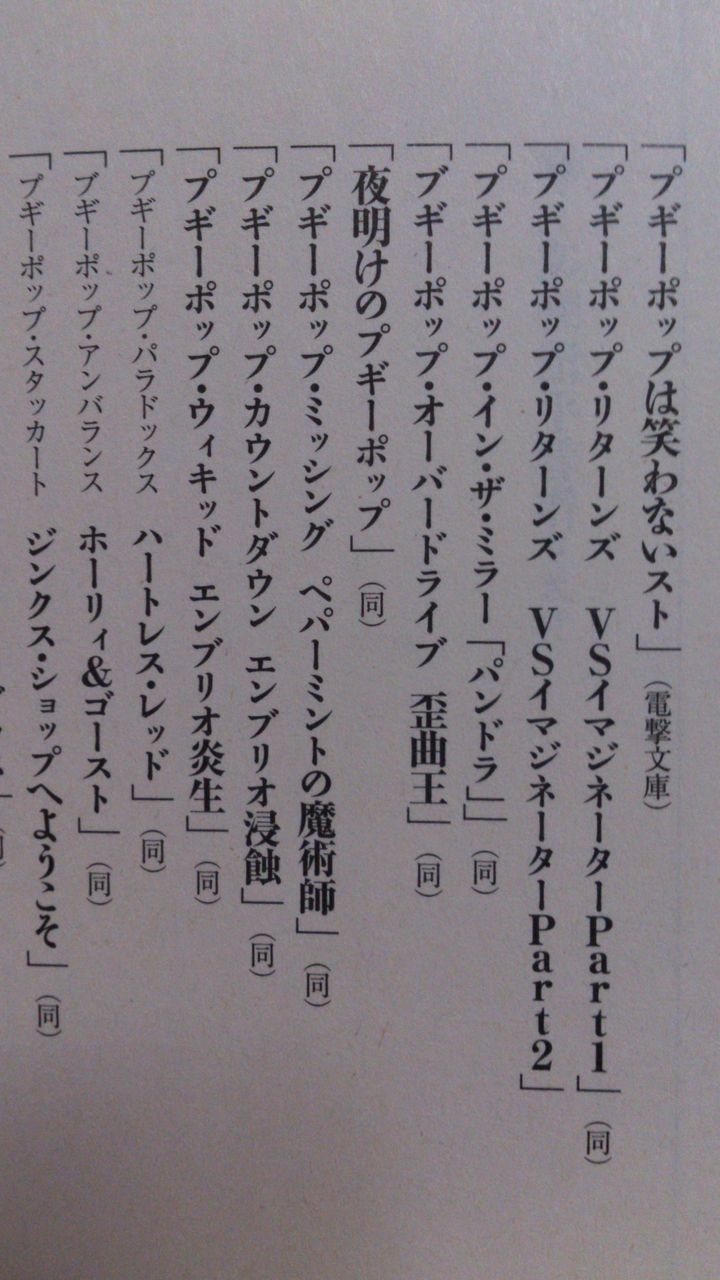 「ブギーポップは笑わないスト」（電撃文庫）
「ブギーポップ・リターンズ　VSイマジネーターPart1」（同）
「ブギーポップ・リターンズ　VSイマジネーターPart2」
「ブギーポップ・イン・ザ・ミラー「パンドラ」」（同）
「ブギーポップ・オーバードライブ　歪曲王」（同）
「夜明けのブギーポップ」（同）
「ブギーポップ・ミッシング　ペパーミントの魔術師」（同）
「ブギーポップ・カウントダウン　エンブリオ浸蝕」（同）
「ブギーポップ・ウィキッド　エンブリオ炎生」（同）
「ブギーポップ・パラドックス　ハートレス・レッド」（同）
「ブギーポップ・アンバランス　ホーリィ&ゴースト」（同）
「ブギーポップ・スタッカート　ジンクス・ショップへようこそ」（同）